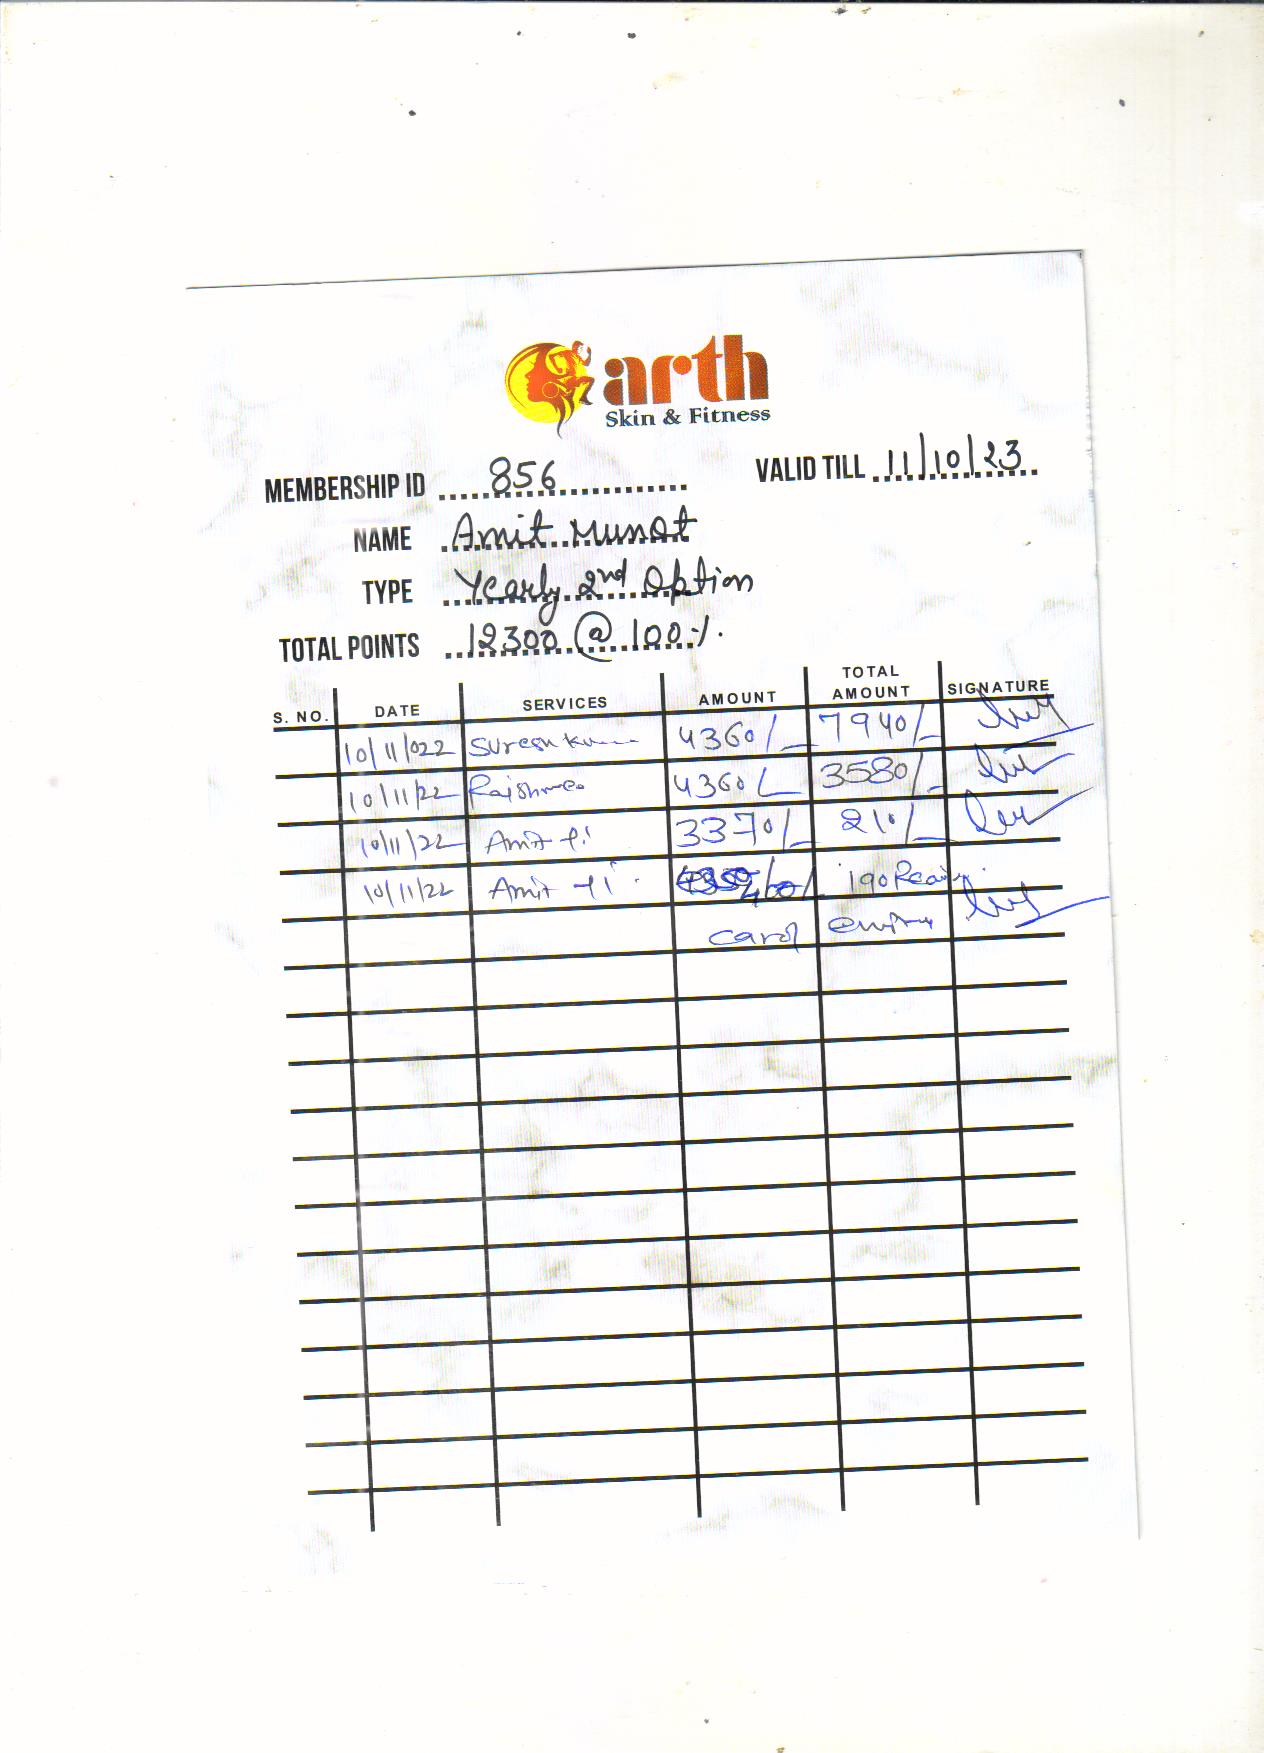 arth
Skin & Fitness
MEMBERSHIP ID 856 VALID TILL 11/10/23
NAME Amit Munot
TYPE Yearly 2nd Option
TOTAL POINTS 12300 @ 100%.
S. NO. DATE SERVICES AMOUNT TOTAL AMOUNT SIGNATURE
10/11/022 Suresh Kumar 4360/- 7940/-
10/11/22 4360/- 3580/-
10/11/22 Amit 3370/- 210/-
10/11/22 Amit 400/- 190
card empty